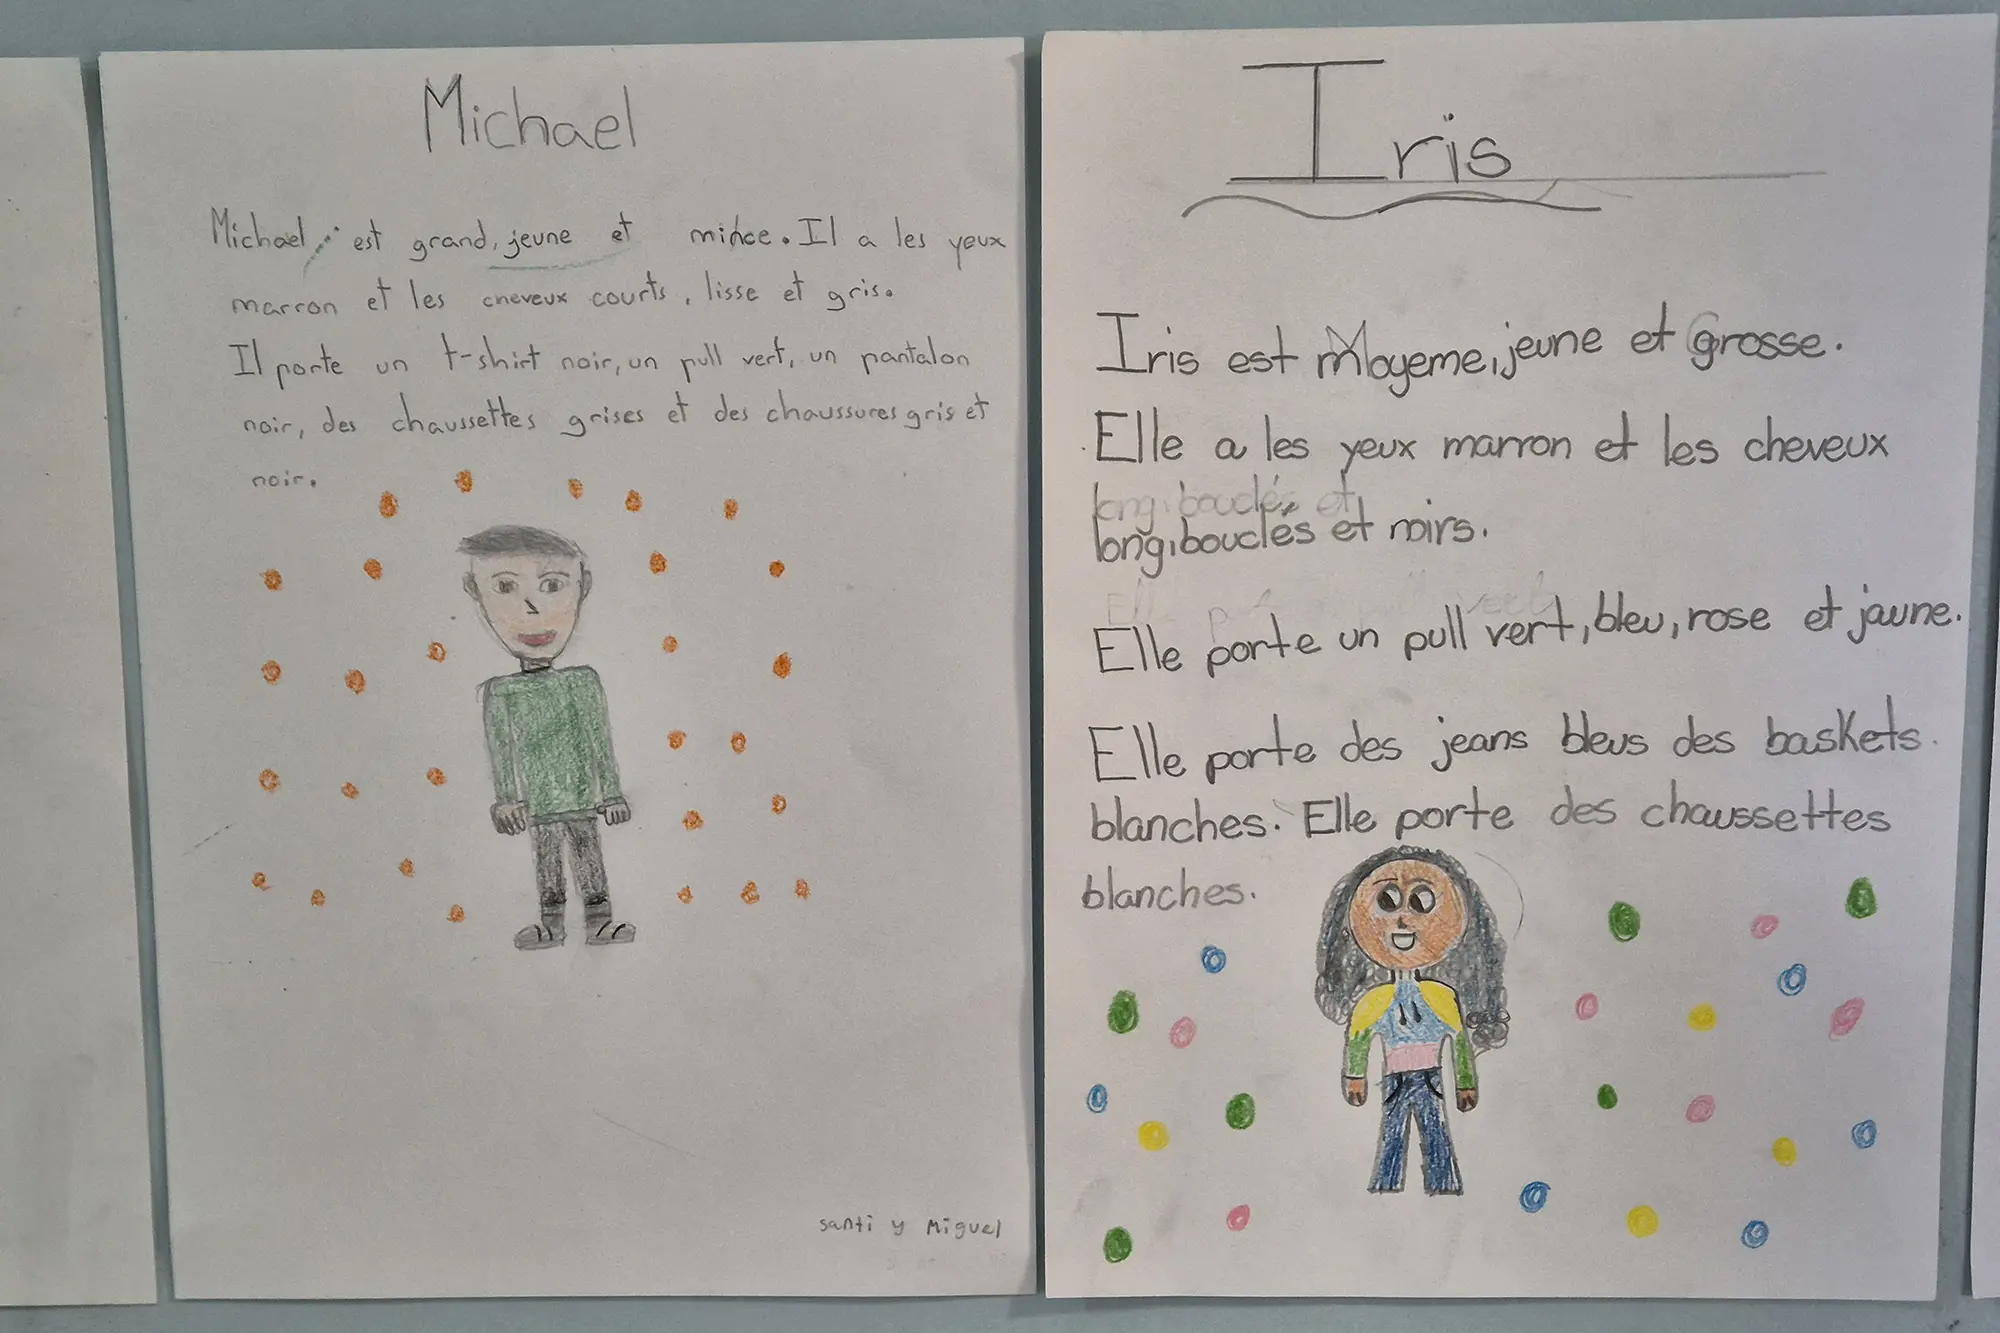 Michael
Michael est grand, jeune et mince. Il a les yeux
marron et les cheveux courts, lisse et gris.
Il porte un t-shirt noir, un pull vert, un pantalon
noir, des chaussettes grises et des chaussures gris et
noir.
santi y Miguel
Iris
Iris est Moyeme, jeune et grosse.
Elle a les yeux marron et les cheveux
long, bouclés et
long, bouclés et noirs.
Elle porte un pull vert, bleu, rose et jaune.
Elle porte des jeans bleus des baskets.
blanches. Elle porte des chaussettes
blanches.